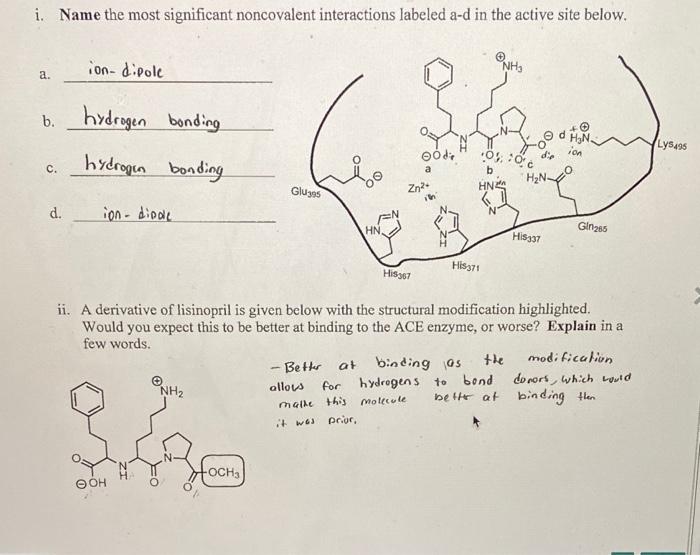 i. Name the most significant noncovalent interactions labeled a-d in the active site below.
a. ion-dipole
b. hydrogen bonding
c. hydrogen bonding
d. ion-dipole
⊕
NH₃
O
N
H
N
⊖O dip
:O:
:O:
c
O ⊖ d H₃N ⊕
dip
ion
Lys₄₉₅
a
b
Zn²⁺
ion
HN
N
H₂N
O
Gln₂₆₅
His₃₃₇
O
O⊖
Glu₃₉₅
HN
N
His₃₆₇
N
N
H
His₃₇₁
ii. A derivative of lisinopril is given below with the structural modification highlighted.
Would you expect this to be better at binding to the ACE enzyme, or worse? Explain in a
few words.
- Better at binding as the modification
allows for hydrogens to bond donors, which would
make this molecule better at binding then
it was prior.
⊕
NH₂
O
⊖OH
N
H
O
N
O
OCH₃